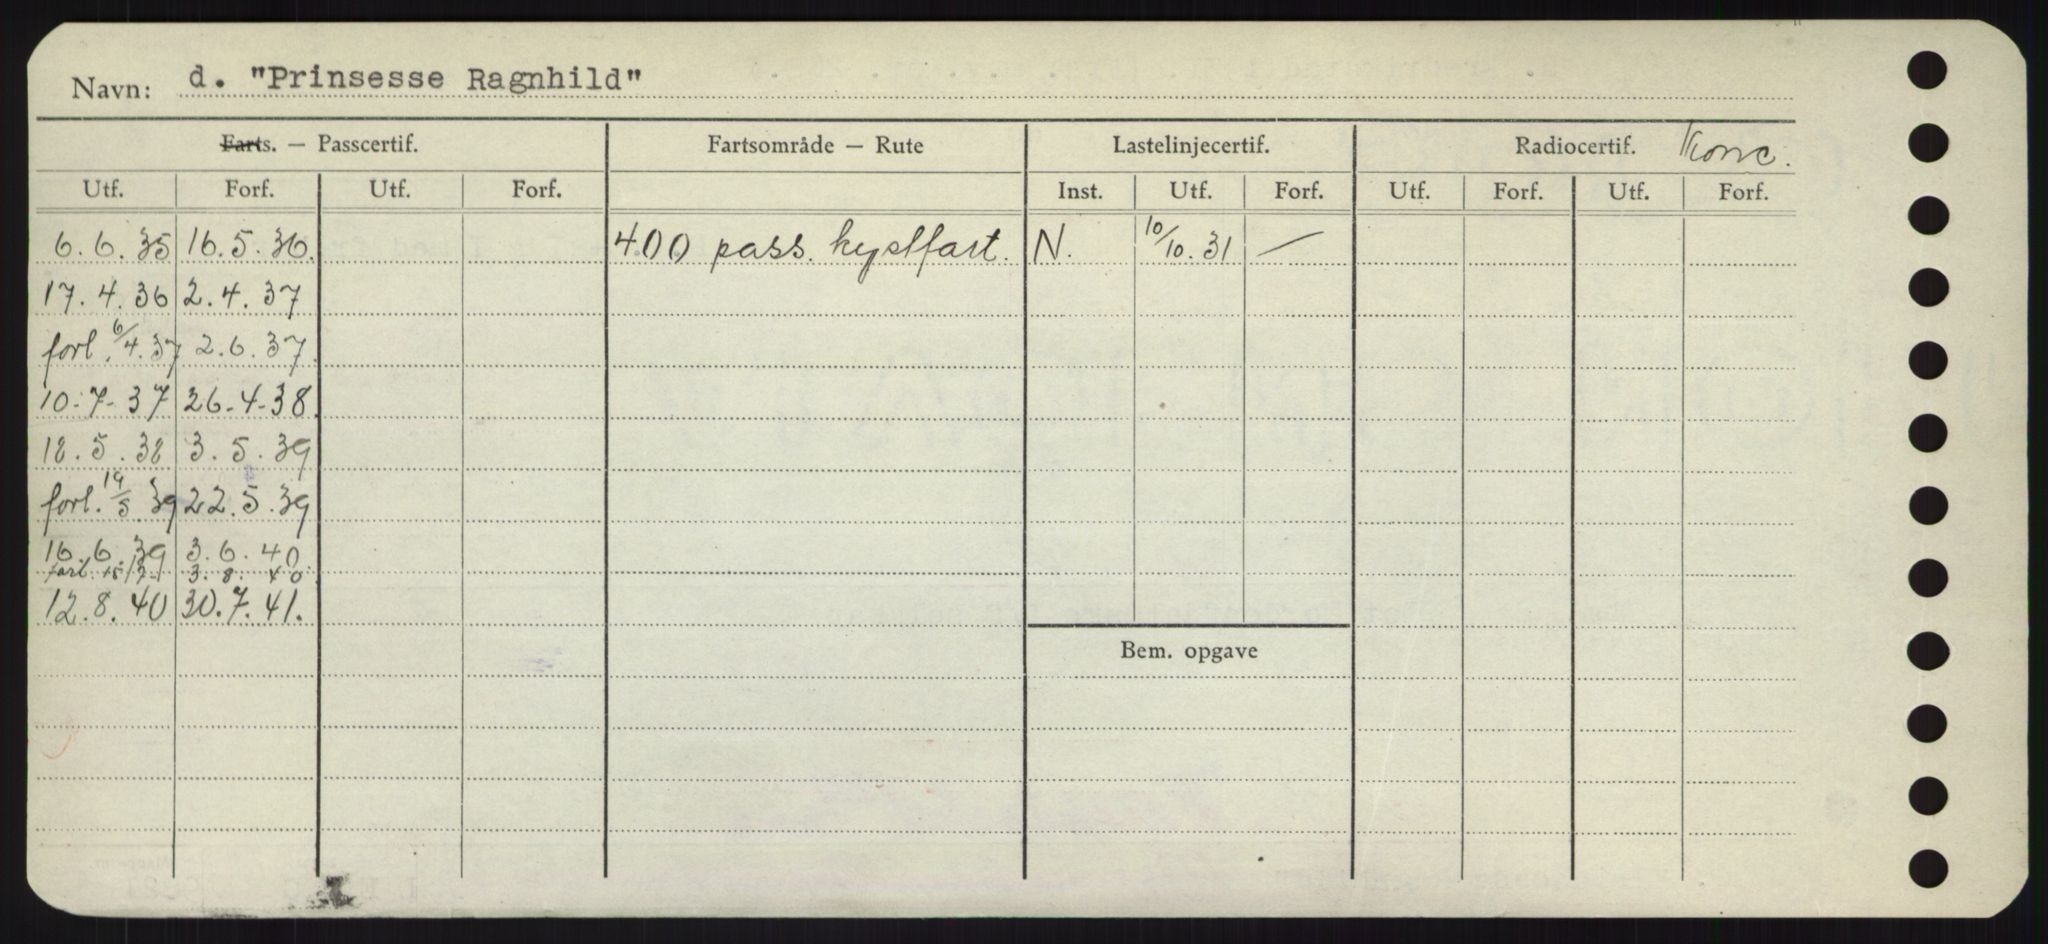 Navn: d. "Prinsesse Ragnhild"
Farts. — Passcertif. Fartsområde — Rute Lastelinjecertif. Radiocertif. Konc.
Utf. Forf. Utf. Forf. Inst. Utf. Forf. Utf. Forf. Utf. Forf.
6.6.35 16.5.36. 400 pass. kystfart. N. 10/10.31 —
17.4.36 2.4.37
forl. 6/4.37 2.6.37.
10-7-37 26-4-38.
18.5.38 3.5.39
forl. 19/5.39 22.5.39
16.6.39 3.6.40.
forl. 3.8.40
12.8.40 30.7.41.
Bem. opgave